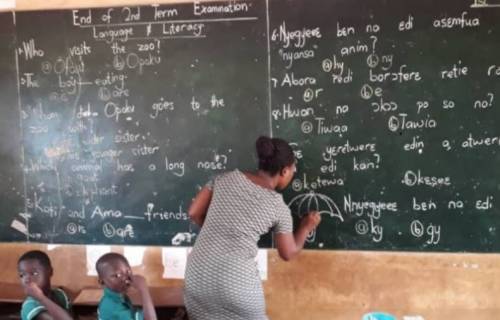 End of 2nd Term Examination
Language & Literacy
1. Who visits the zoo?
ⓐ Ofori ⓑ Opoku
2. The boy eating.
ⓑ are
3. Opoku goes to the
zoo with
sister
younger sister
4. Which animal has a long nose?
elephant
5. Kofi and Ama ___ friends
ⓐ is ⓑ are
6. Nyegyeeɛ ben na edi asemfua
"nyansa" anim?
ⓐ hy ⓑ ny
7. Abora redi borɔfere retie
ⓐ r ⓑ e
8. Hwan na ɔkɔɔ po so no?
ⓐ Tiwaa ⓑ Tawia
yeretwerɛ edin a atwerɛ
edi kan?
ⓐ kɔtewa ⓑ keseɛ
Nnyegyeeɛ ben na edi
ⓐ ky ⓑ gy